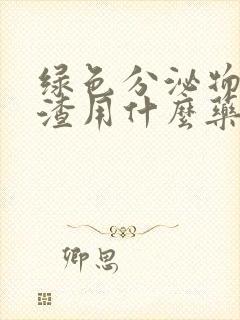 绿色分泌物
渣用什麼藥
卿思